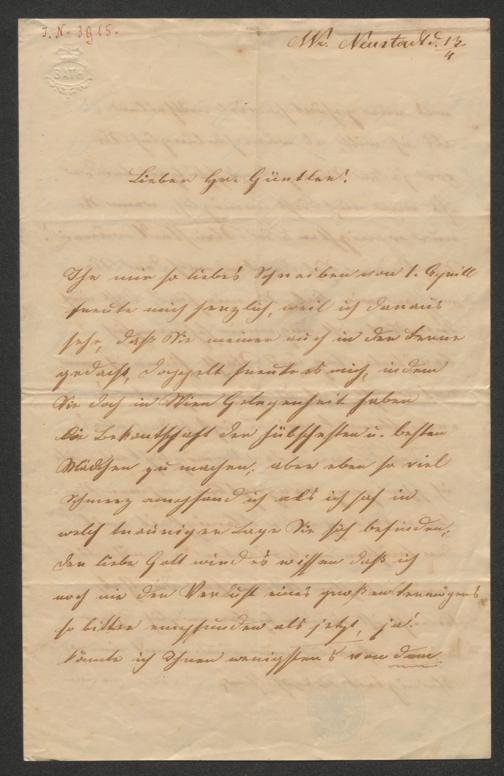 J. N. 3965.
BATH
Wr. Neustadt d. 13/4
Lieber Hr. Günther!
Ihr mir so liebes Schreiben von 1. April
freute mich herzlich, weil ich daraus
sehe, daß Sie meiner auch in der Ferne
gedacht, doppelt freute es mich, indem
Sie doch in Wien Gelegenheit haben
die Bekantschaft der hübschesten u. besten
Mädchen zu machen. aber eben so viel
Schmerz empfand ich als ich sah in
welch trauriger Lage Sie sich befinden,
der liebe Gott wird es wissen daß ich
noch nie den Verlust eines großen Vermögens
so bitter empfunden als jetzt, ja!
könnte ich Ihnen wenigstens von dem